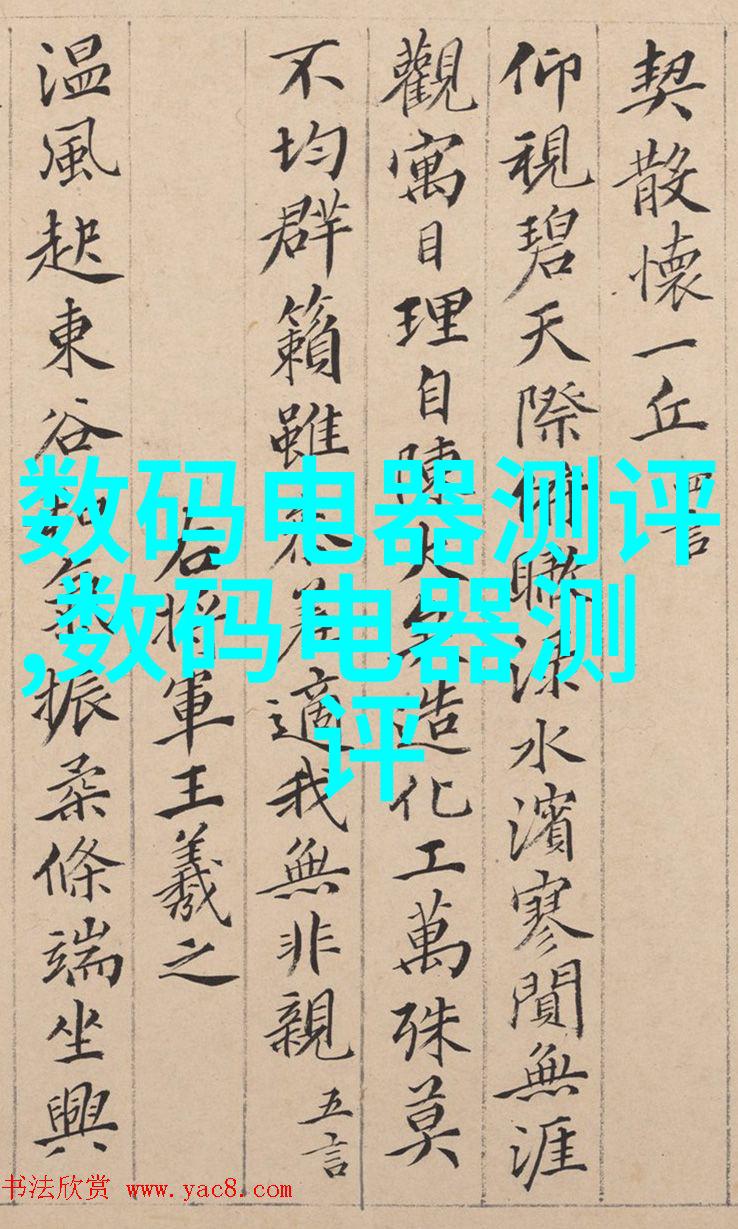 契散懷一丘 四言
仰視碧天際俯瞰淥水濱寥閴無涯
觀寓目理自陳大矣造化工萬殊莫
不均群籟雖參差適我無非親 五言
右將軍王羲之
温風起東谷和氣振柔條端坐興
数码电器测评
,数码电器测
评
书法欣赏 www.yac8.com